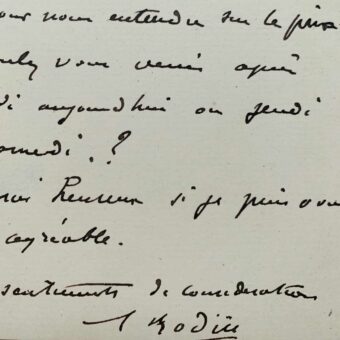 our nous entendre sur le prix
ulez vous venir après
di aujourdhui ou jeudi
amedi.?
rais heureux si je puis vous
agréable.
sentiments de considération
A Rodin